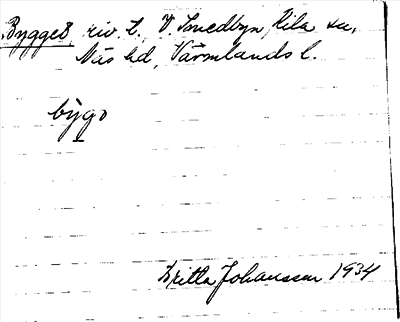 Bygget riv. l., V. Smedbyn, Kila sn,
Näs hd, Värmlands l.
bỳgə
Britta Johansson 1934